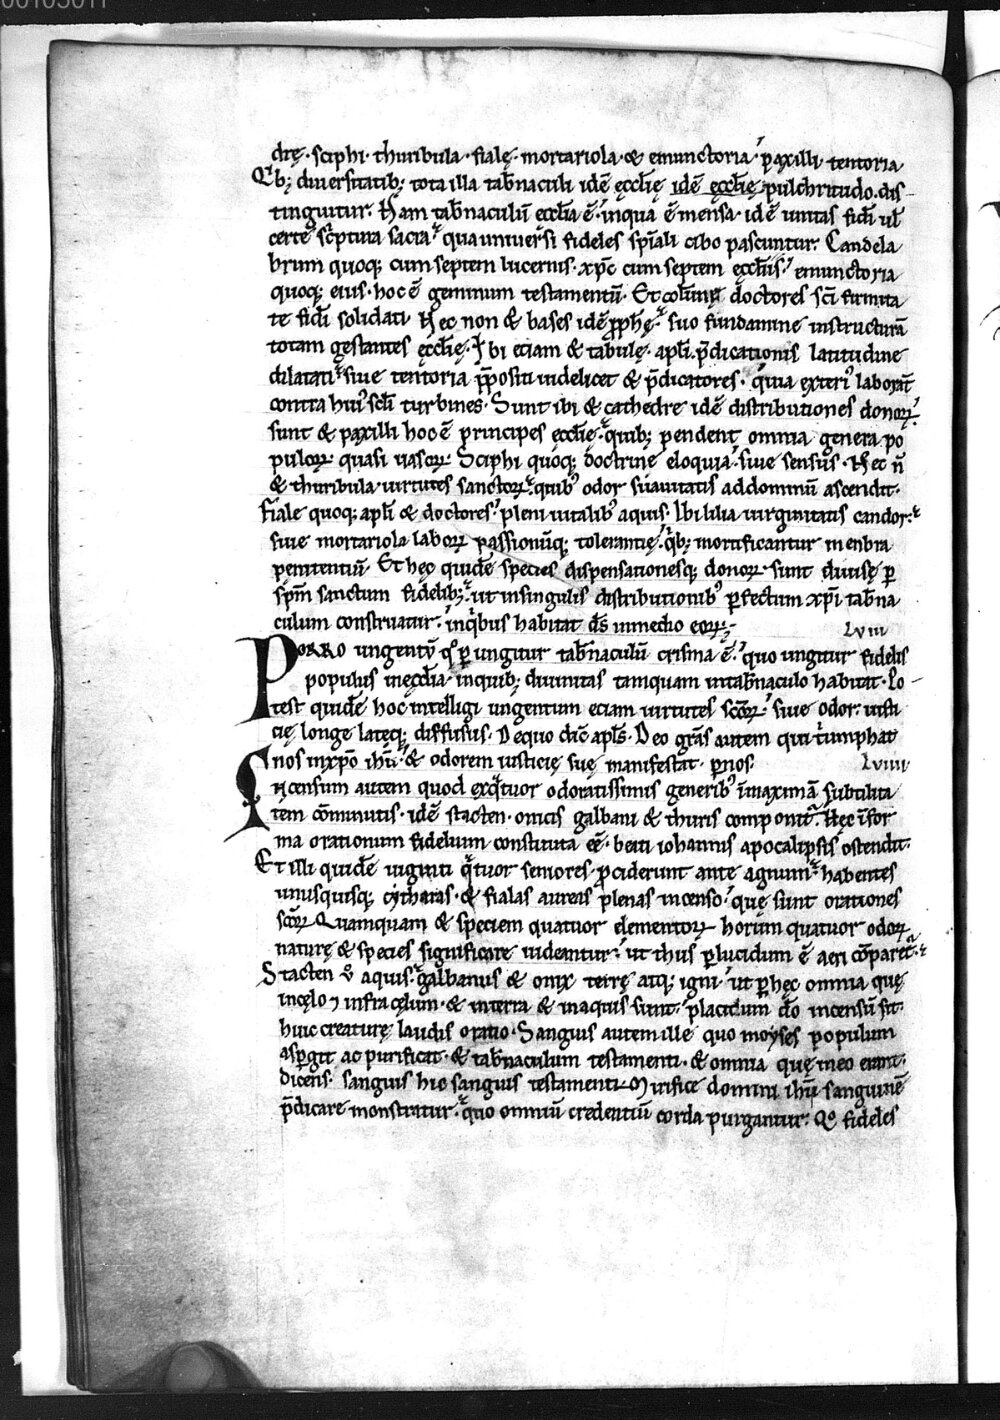 drę · sciphi · thuribula · fialę · mortariola · & emunctoria · paxilli tentoria
Q͛b; diuersitatib; tota illa tab̄naculi idē ęcclīę idē ęcclīę pulchritudo · dis-
tinguitur. Nam tab̄naculū ecclīa ē · inqua ē mensa · idē unitas fidei ul̄
certe sc͛ptura sacra · qua uniuersi fideles spīali cibo pascuntur. Candela
brum quoq; cum septem lucernis · xp̄c cum septem ęcclīis · emunctoria
quoq; eius · hoc ē geminum testamentū · Et colūnę doctores scī firmita
te fidei solidati Nec non & bases idē prophę · suo fundamine instructurā
totam gestantes ęcclīę · Ibi eciam & tabulę · aplī p̄dicationis latitudine
dilatati · siue tentoria p̄positi uidelicet & p̄dicatores · quia exteri᾽ laborāt
contra hui᾽ scl̄i turbines · Sunt ibi & cathedre idē distributiones donoꝝ ·
sunt & paxilli hoc ē principes ęcclīę · quib; pendent omnia genera po
puloꝝ quasi uasoꝝ. Sciphi quoq; doctrine eloquia · siue sensus · Nec n̄
& thuribula uirtutes sanctoꝝ · quib᾽ odor suauitatis addominū ascendit ·
fiale quoq; aplī & doctores · pleni uitalib᾽ aquis · Ibi lilia uirginitatis candor ·
siue mortariola laboꝝ passionūq; tolerantię · q͛b; mortificantur menbra
penitentiū · Et hęc quidē species dispensationesq; donoꝝ sunt diuisę ꝑ
spm̄ sanctum fidelib; · ut insingulis distributionib᾽ ꝑfectum xpī tab̄na
culum construatur · inq͛bus habitat dē inmedio eoꝝ ·
Lviii
PORRO ungentū q͛ ꝑungitur tab̄naculū crisma ē · quo ungitur fidelis
populus inęcclīa · inquib; diuinitas tamquam intab̄naculo habitat · Po-
test quidē hoc intelligi ungentum eciam uirtutes scōꝝ · siue odor iusti
cię longe lateq; diffusus. Dequo dic̄ apl̄s · Deo grās autem qui t͛umphat
nos inxp̄o ihū · & odorem iusticię suę manifestat · ꝑ nos
Lviiii
Incensum autem quod exq͛tuor odoratissimis generib᾽ īmaximā subtilita
tem cōminutis · idē stacten · onicis galbani & thuris componit͛. Hęc īfor
ma orationum fidelium constituta eē · beati iohannis apocalipsis ostendit ·
Et illi quidē uiginti q͛tuor seniores prociderunt ante agnum · habentes
unusquisq; cytharas · & fialas aureas plenas incenso · quę sunt orationes
scōꝝ Quamquam & speciem quatuor elementoꝝ horum quatuor odoꝝ
naturę & species significare uideantur · ut thus ꝑlucidum ē aeri cōparet͛ ·
Stacten u̅ aquis · galbanus & onix terrę atq; igni · ut ꝑ hęc omnia quę
incęlo ⁊ infra cęlum · & interra & inaquis sunt · placitum dō incensū sit ·
huic creaturę laudis oratio · Sanguis autem ille quo moyses populum
aspergit ac purificat · & tab̄naculum testamenti · & omnia quę ineo erant ·
dicens · sanguis hic sanguis testamenti · Mirifice domini ihū sanguinē
p̄dicare monstratur · quo omniū credentiū corda purgantur. Qo fideles